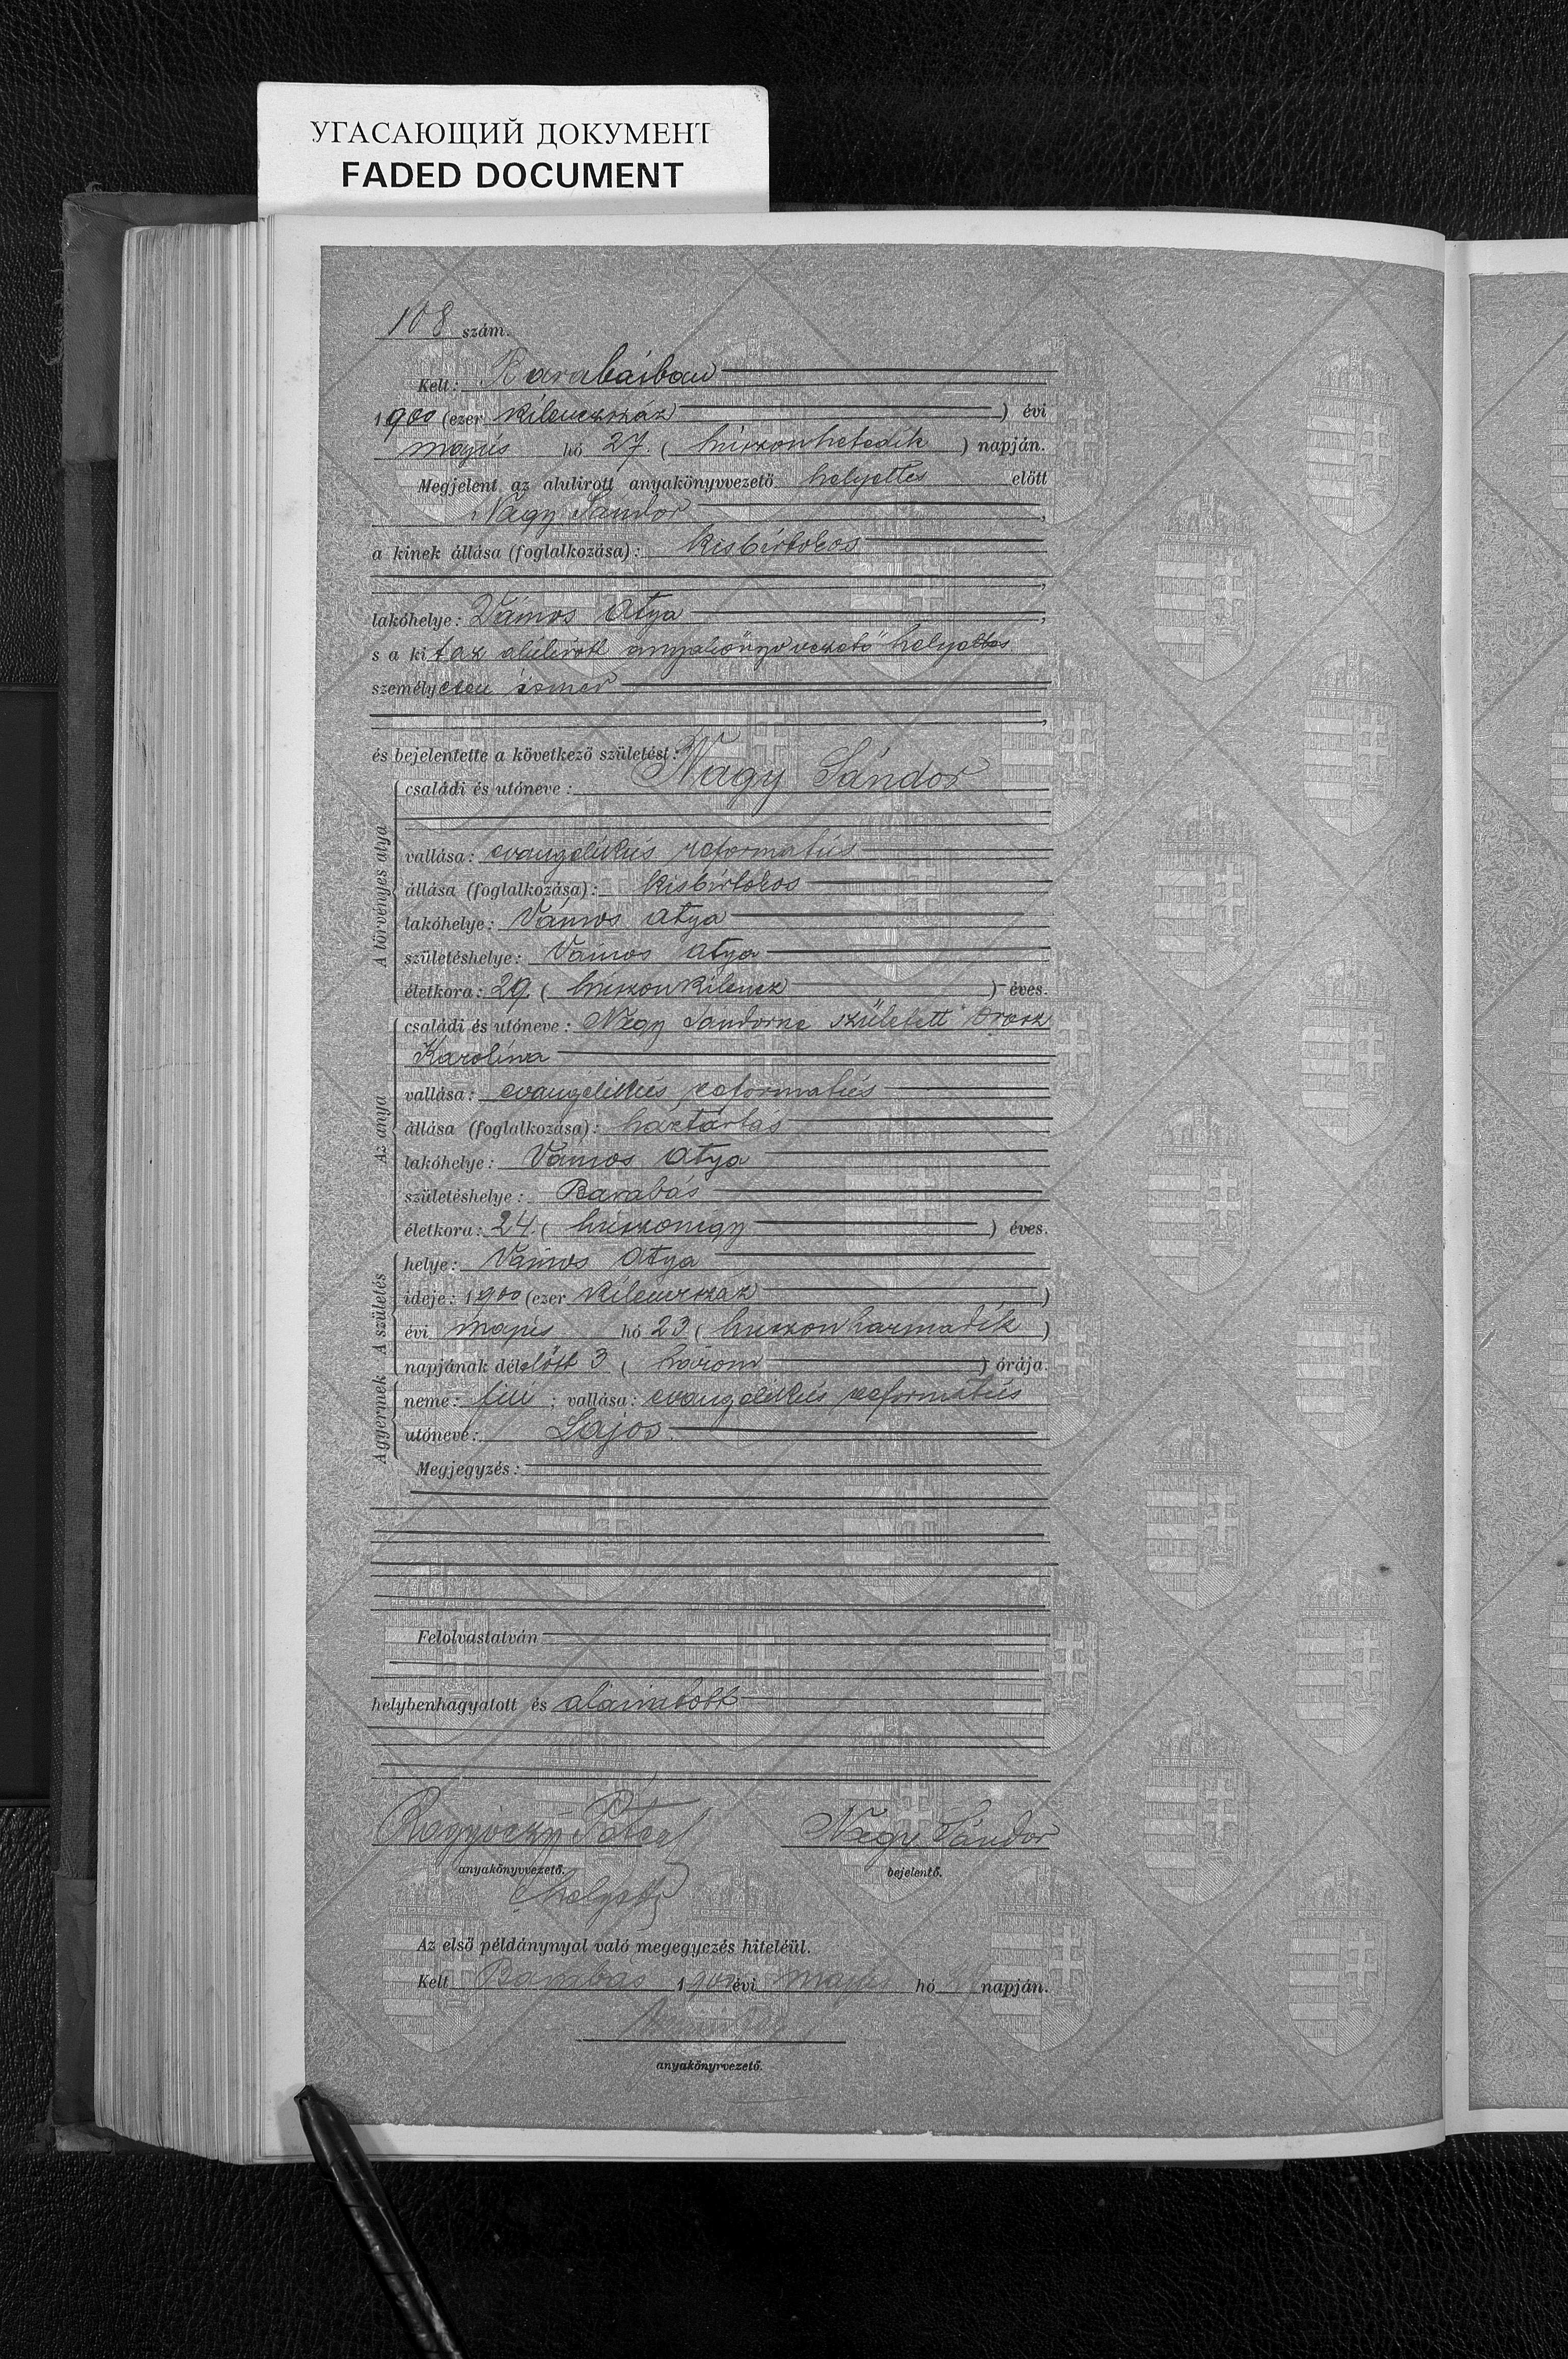 УГАСАЮЩИЙ ДОКУМЕНТ
FADED DOCUMENT
108 szám.
Kelt: Barabásban
1900 (ezer kilenczszáz) évi
május hó 27. (huszonhetedik) napján.
Megjelent az alulirott anyakönyvvezető helyettes előtt
Nagy Sándor,
a kinek állása (foglalkozása): kisbirtokos
,
lakóhelye: Vámos Atya,
s a kit az alulirott anyakönyvvezető helyettes
személyesen ismer
,
és bejelentette a következő születést:
A törvényes atya
családi és utóneve: Nagy Sándor
vallása: evangélikus református
állása (foglalkozása): kisbirtokos
lakóhelye: Vámos Atya
születéshelye: Vámos Atya
életkora: 29. (huszonkilencz) éves.
Az anya
családi és utóneve: Nagy Sandorne született Orosz
Karolina
vallása: evangélikus református
állása (foglalkozása): háztartás
lakóhelye: Vámos Atya
születéshelye: Barabás
életkora: 24. (huszonnégy) éves.
A születés
helye: Vámos Atya
ideje: 1900 (ezer kilenczszáz)
évi május hó 23 (huszonharmadik)
napjának délelőtt 3 (három) órája.
A gyermek
neme: fiu; vallása: evangélikus református
utóneve: Lajos.
Megjegyzés:
Felolvastatván
helybenhagyatott és aláiratott
Péter Nagy Sándor
anyakönyvvezető. bejelentő.
helyett
Az első példánynyal való megegyezés hiteléül.
Kelt Barabás 1900 évi május hó napján.
anyakönyvvezető.